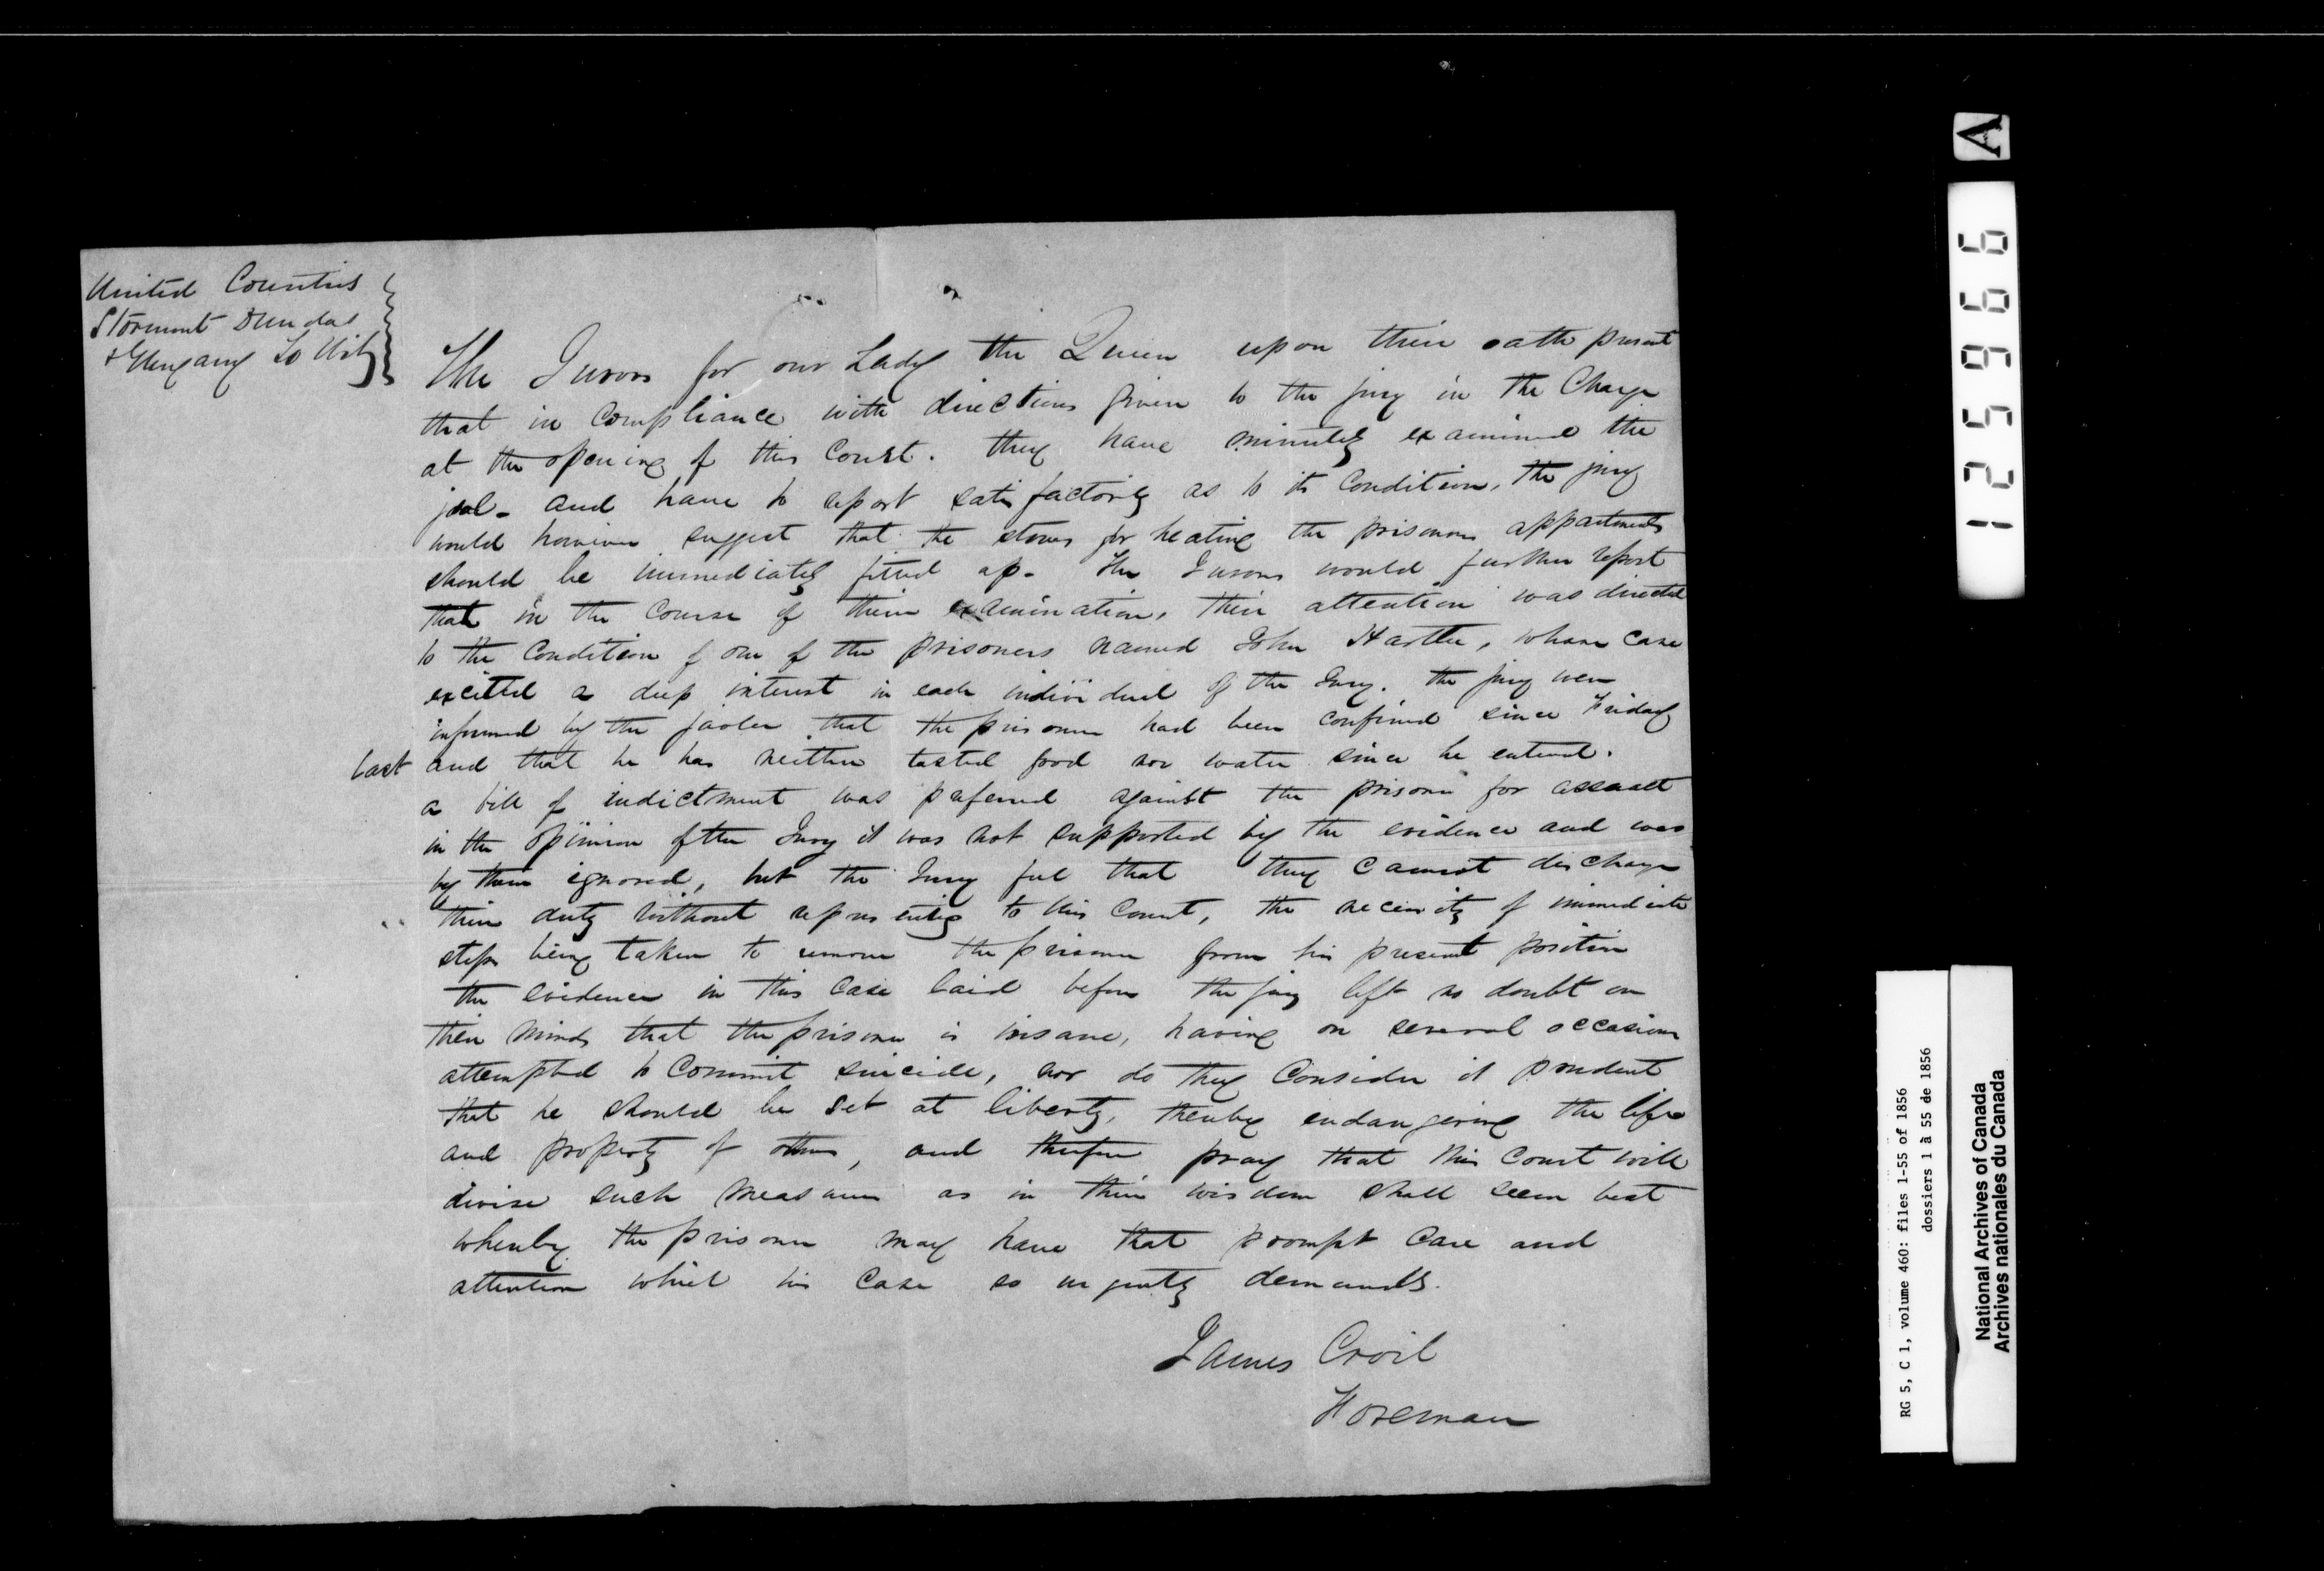 United Counties
Stormont Dundas
& Glengarry To Wit
The Jurors for our Lady the Queen upon their oath present
that in compliance with directions given to the jury in the Charge
at the opening of this Court. they have minutely examined the
jail - and have to report satisfactorily as to its Condition, The jury
would however suggest that the stoves for heating the prisoners appartments
should be immediately fitted up. The Jurors would further report
that in the Course of their examination, their attention was directed
to the Condition of one of the prisoners named John Hartle, whose case
excited a deep interest in each individual of the Jury. the jury were
informed by the jaoler that the prisoner had been confined since Friday
last and that he has neither tasted food nor water since he entered.
a bill of indictment was preferred against the prisoner for assault
in the opinion of the Jury it was not supported by the evidence and was
by them ignored, but the Jury feel that they cannot discharge
their duty without representing to this Court, the necessity of immediate
steps being taken to remove the prisoner from his present position
the evidence in this case laid before the jury left no doubt on
their minds that the prisoner is insane, having on several occasions
attempted to Commit suicide, nor do they Consider it prudent
that he should be set at liberty, thereby endangering the life
and property of others, and therefore pray that this Court will
devise such measures as in their wisdom shall seem best
whereby the prisoner may have that prompt Care and
attention which his case so urgently demands.
James Croil
Foreman
A
125966
RG 5, C 1, volume 460: files 1-55 of 1856
dossiers 1 à 55 de 1856
National Archives of Canada
Archives nationales du Canada